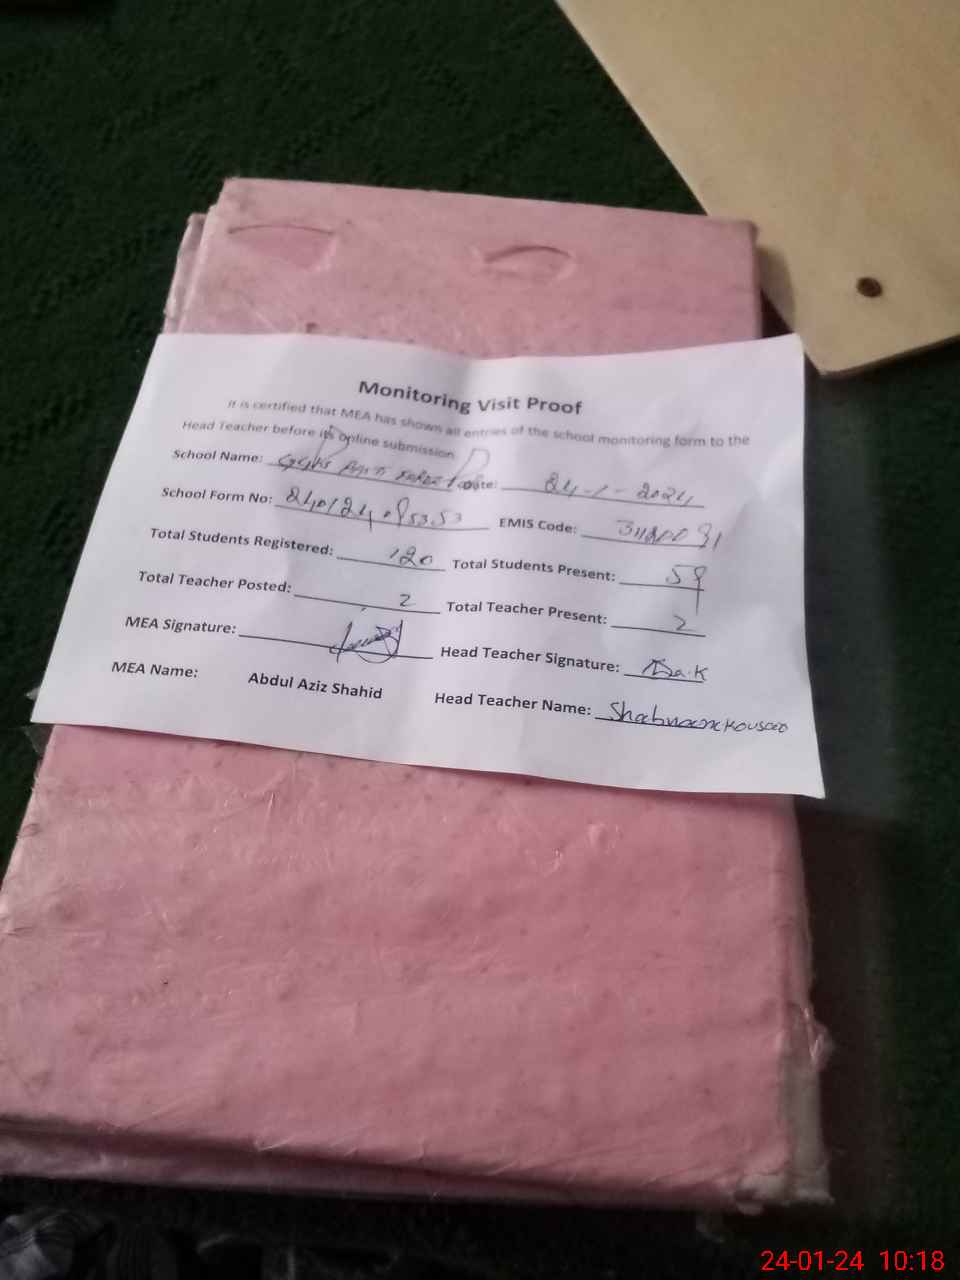 Monitoring Visit Proof
It is certified that MEA has shown all entries of the school monitoring form to the
Head Teacher before its online submission
School Name: Date: 24-1-2024
School Form No: EMIS Code:
Total Students Registered: 120 Total Students Present: 59
Total Teacher Posted: 2 Total Teacher Present: 2
MEA Signature: Head Teacher Signature:
MEA Name: Abdul Aziz Shahid Head Teacher Name: Shabnam Kousar
24-01-24 10:18